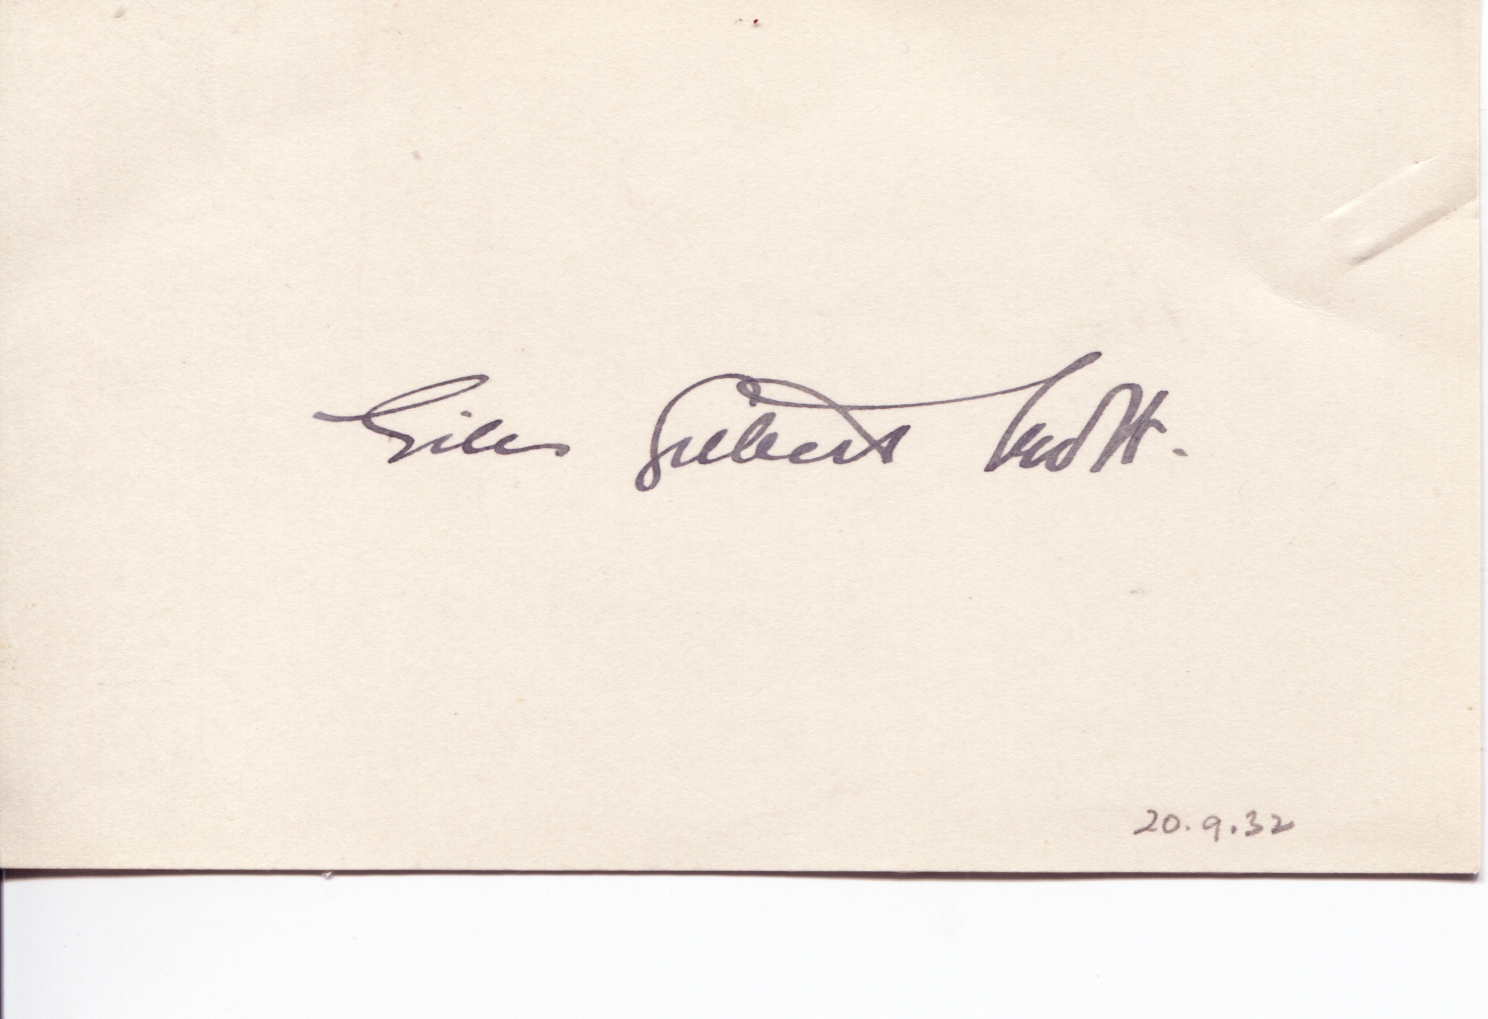 Giles Gilbert Scott.
20.9.32